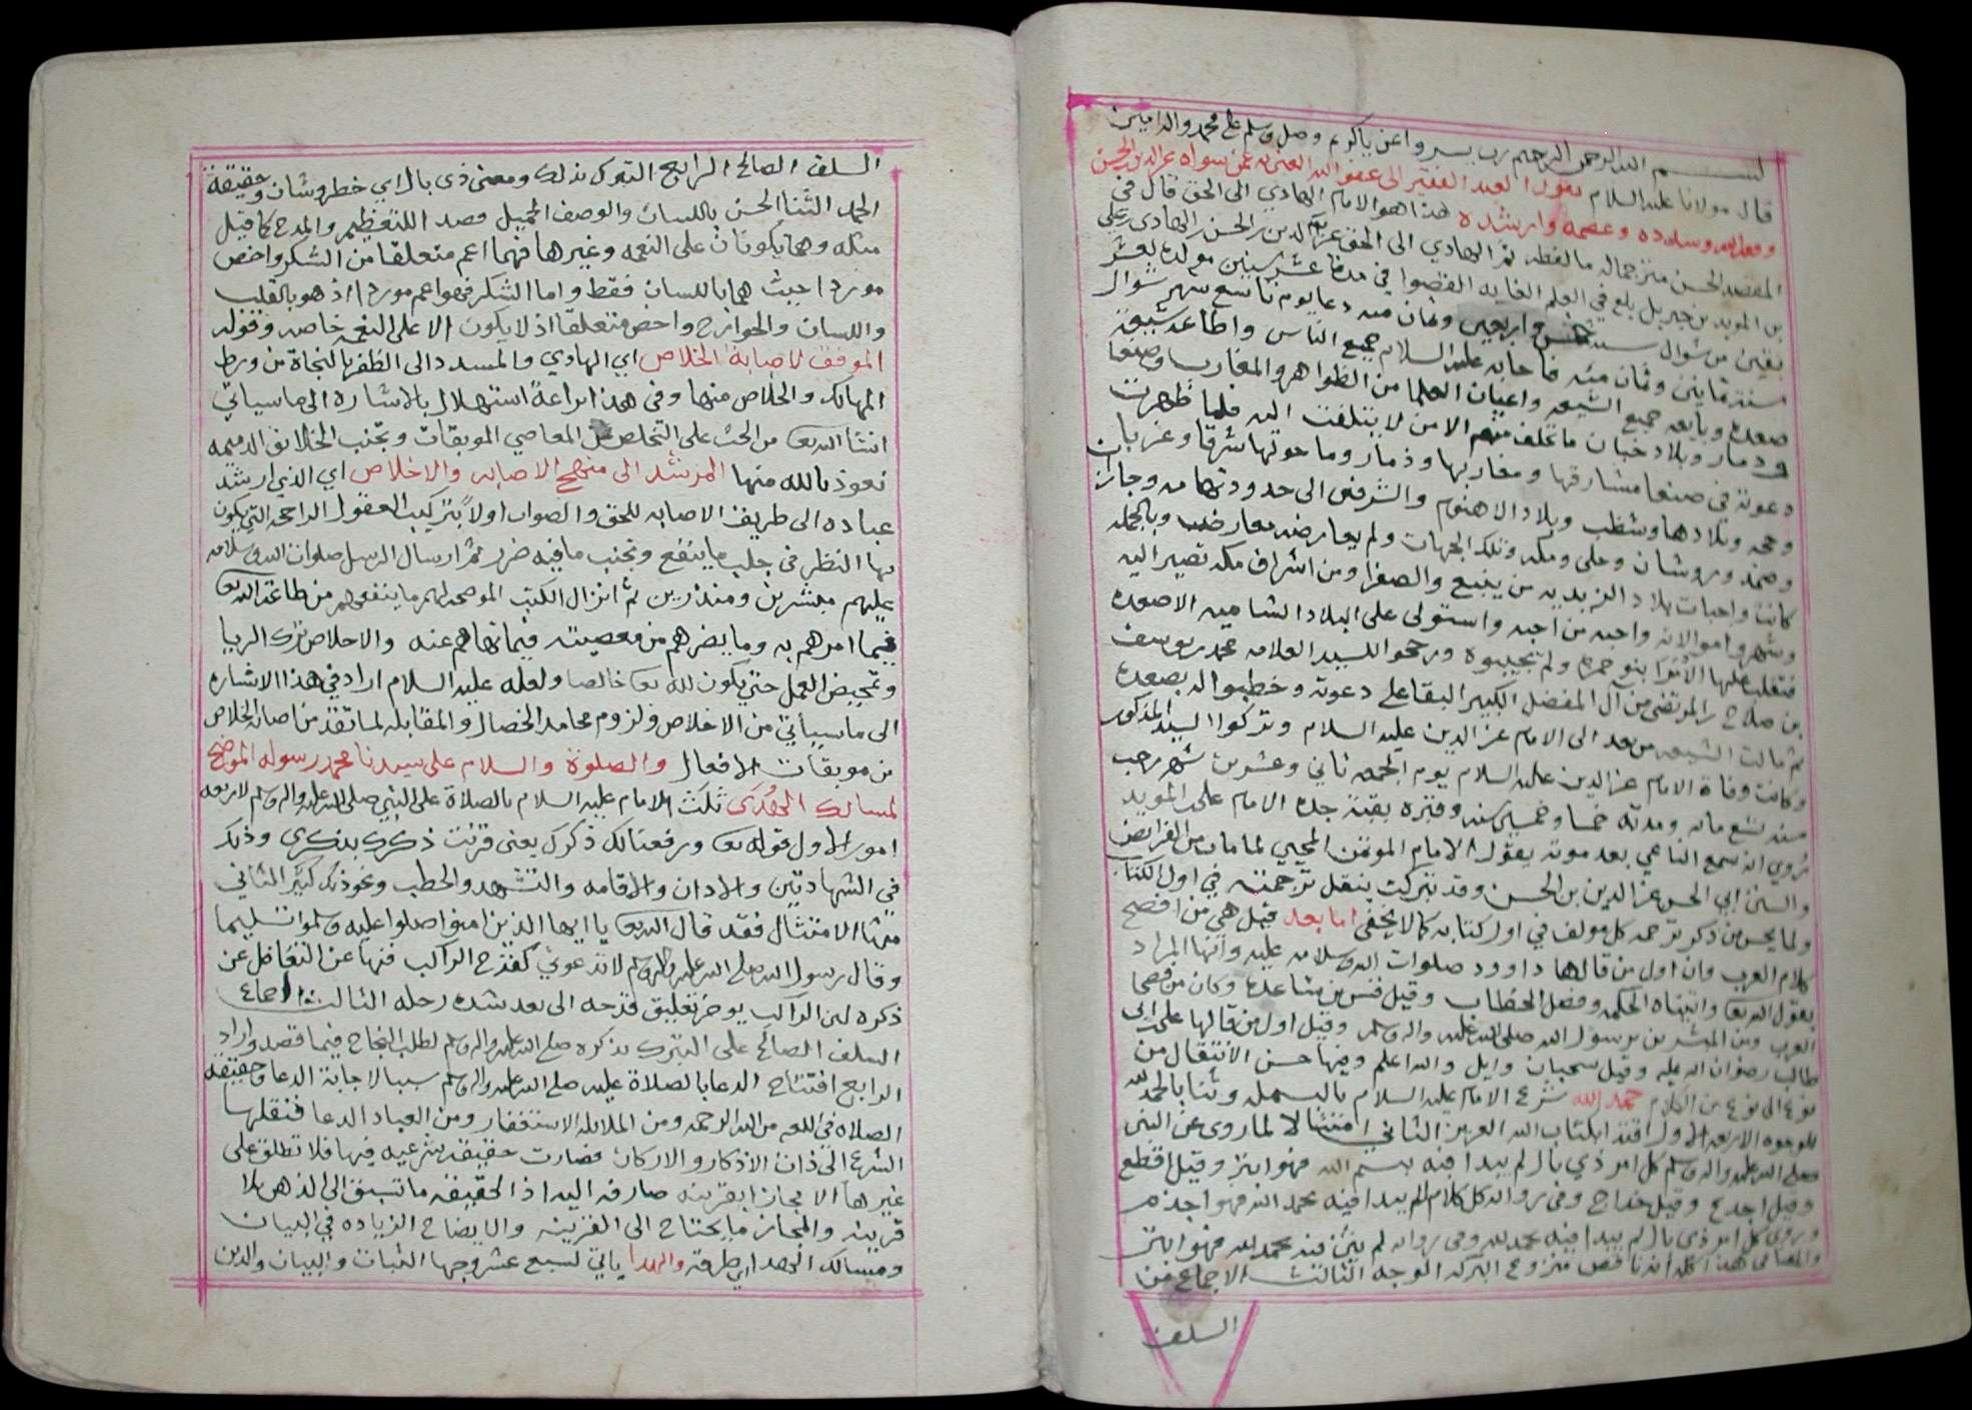 بسم الله الرحمن الرحيم رب يسر واعن ياكريم وصل وسلم على محمد واله امين
قال مولانا عليه السلام يقول العبد الفقير الى عفو الله الغني به عمن سواه عز الدين بن الحسن
وفقه الله وسدده وعصمه وارشده هذا هو الامام الهادي الى الحق قال في
المقصد الحسن مترجما له ما لفظه ثم الهادي الى الحق عز الدين بن الحسن بن الهادي بن علي
بن المويد بن جبريل بلغ في العلم الغايه القصوا في مدة عشر سنين مولده لعشر
بقين من شوال سنة خمس واربعين وثمان مئه دعا يوم تاسع شهر شوال
سنة ثمانين وثمان مئه فاجابه عليه السلام جميع الناس واطاعه شيعة
صعده وبايعه جميع الشيعه واعيان العلما من الظواهر والمغارب وصنعا
وذمار وبلاد خبان ما تخلف منهم الا من لا يلتفت اليه فلما ظهرت
دعوته في صنعا مشارقها ومغاربها وذمار وما حولها شرقا وغربا
وحجه وبلادها وشظب وبلاد الاهنوم والشرفين الى حدود تهامه وجازان
وضمد وروشان وحلى ومكه وتلك الجهات ولم يعارضه معارض وبالجمله
كانت واجبات بلاد الزيديه من ينبع والصفرا ومن اشراف مكه تصير اليه
واحبه من احبه واستولى على البلاد الشاميه الا صعده
فتغلب عليها بنو حمزه ولم يجيبوه ورجحوا للسيد العلامه محمد بن يوسف
بن صلاح بن المرتضى من آل المفضل الكبير البقا على دعوته وخطبوا له بصعده
ثم مالت الشيعه من بعد الى الامام عز الدين عليه السلام وتركوا السيد المذكور
وكانت وفاة الامام عز الدين عليه السلام يوم الجمعه ثاني وعشرين شهر رجب
سنة تسع مائه ومدته خمسا وخمسين سنه وقبره بقبة جده الامام علي بن المويد
روي انه سمع الناعي بعد موته يقول الامام الموتمن المحيي لما مات من الفرايض
والسنن ابي الحسن عز الدين بن الحسن وقد تبركت بنقل ترجمته في اول الكتاب
ولما يحسن من ذكر ترجمه كل مولف في اول كتابه كما لا يخفى اما بعد قيل هي من افصح
كلام العرب وان اول من قالها داوود صلوات الله وسلامه عليه وانها المراد
بقول الله تعالى واتيناه الحكمه وفصل الخطاب وقيل قس بن ساعده وكان من فصحا
العرب ومن المبشرين برسول الله صلى الله عليه واله وسلم وقيل اول من قالها علي بن ابي
طالب رضوان الله عليه وقيل سحبان وايل والله اعلم وفيها حسن الانتقال من
نوع الى نوع من الكلام حمد الله شرع الامام عليه السلام بالبسمله وثنا بالحمد لله
للوجوه الاربعه الاول اقتدا بكتاب الله العزيز الثاني امتثالا لما روى عن النبي
صلى الله عليه واله وسلم كل امر ذي بال لم يبدا فيه ببسم الله فهو ابتر وقيل اقطع
وقيل اجدع وقيل خداج وفي روايه كل كلام لم يبدا فيه بحمد الله فهو اجذم
وروي كل امر ذي بال لم يبدا فيه بحمد لله وفي روايه لم يثن فيه بحمد لله فهو ابتر
والمعنى في هذا كله انه ناقص منزوع البركه الوجه الثالث الاجماع من
السلف
السلف الصالح الرابع التبرك بذلك ومعنى ذي بال اي خطر وشان وحقيقة
الحمد الثنا الحسن باللسان والوصف الجميل قصد اللتعظيم والمدح كما قيل
مثله وهما يكونان على النعمه وغيرها فهما اعم متعلقا من الشكر واخص
موردا حيث هما باللسان فقط واما الشكر فهو اعم موردا اذ هو بالقلب
واللسان والجوارح واخص متعلقا اذ لا يكون الا على النعمه خاصه وقوله
الموفق لاصابة الخلاص اي الهادي والمسدد الى الظفر بالنجاة من ورط
المهالك والخلاص منها وفي هذا براعة استهلال بالاشاره الى ما سياتي
انشا الله تعالى من الحث على التخلص عن المعاصي الموبقات وتجنب الخلايق الذميمه
نعوذ بالله منها المرشد الى منهج الاصابه والاخلاص اي الذي ارشد
عباده الى طريق الاصابه للحق والصواب اولاً بتركيب العقول الراجحه التي يكون
بها النظر في جلب ما ينفع وتجنب ما فيه ضرر ثم ارسال الرسل صلوات الله وسلامه
عليهم مبشرين ومنذرين ثم انزال الكتب الموضحه لهم ما ينفعهم من طاعة الله تعالى
فيما امرهم به وما يضرهم من معصيته فيما نهاهم عنه والاخلاص ترك الريا
وتمحيض العمل حتى يكون لله تعالى خالصا ولعله عليه السلام اراد في هذا الاشاره
الى ما سياتي من الاخلاص ولزوم محامد الخصال والمقابله لما تقدم من اصابة الخلاص
من موبقات الافعال والصلوة والسلام على سيدنا محمد رسوله الموضح
لمسالك الهدى ثلث الامام عليه السلام بالصلاة على النبي صلى الله عليه واله وسلم لاربعه
امور الاول قوله تعالى ورفعنا لك ذكرك يعنى قرنت ذكرك بذكري وذلك
في الشهادتين والاذان والاقامه والتشهد والخطب ونحو ذلك كثير الثاني
منها الامتثال فقد قال الله تعالى يا ايها الذين امنوا صلوا عليه وسلموا تسليما
وقال رسول الله صلى الله عليه واله وسلم لا تدعوني كقدح الراكب فنها عن التغافل عن
ذكره لان الراكب يوخر تعليق قدحه الى بعد شده رحله الثالث اجماع
السلف الصالح على التبرك بذكره صلى الله عليه واله وسلم لطلب النجاح فيما قصد واراد
الرابع افتتاح الدعا بالصلاة عليه صلى الله عليه واله وسلم سببا لاجابة الدعا وحقيقة
الصلاه في اللغه من الله الرحمه ومن الملايكه الاستغفار ومن العباد الدعا فنقلها
الشرع الى ذات الاذكار والاركان فصارت حقيقه شرعيه فيها فلا تطلق على
غيرها الا مجازا بقرينه صارفه اليه اذ الحقيقه ما تسبق الى الذهن بلا
قرينه والمجاز ما يحتاج الى القرينه والايضاح الزياده في البيان
ومسالك الهدا اي طرقه والهدا ياتي لسبع عشر وجها الثبات والبيان والدين